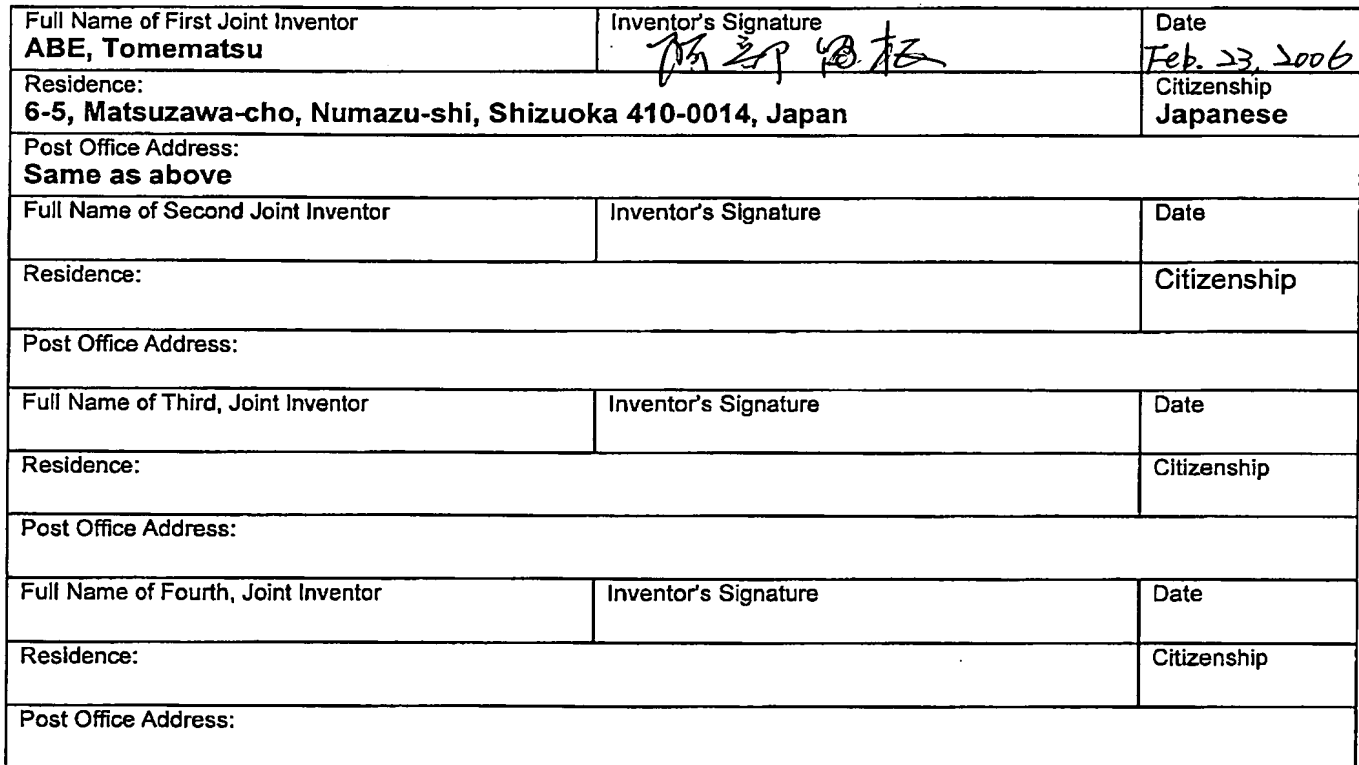 Full Name of First Joint Inventor Inventor's Signature Date
ABE, Tomematsu 阿部留松 Feb. 23, 2006
Residence: Citizenship
6-5, Matsuzawa-cho, Numazu-shi, Shizuoka 410-0014, Japan Japanese
Post Office Address:
Same as above
Full Name of Second Joint Inventor Inventor's Signature Date
Residence: Citizenship
Post Office Address:
Full Name of Third, Joint Inventor Inventor's Signature Date
Residence: Citizenship
Post Office Address:
Full Name of Fourth, Joint Inventor Inventor's Signature Date
Residence: Citizenship
Post Office Address: